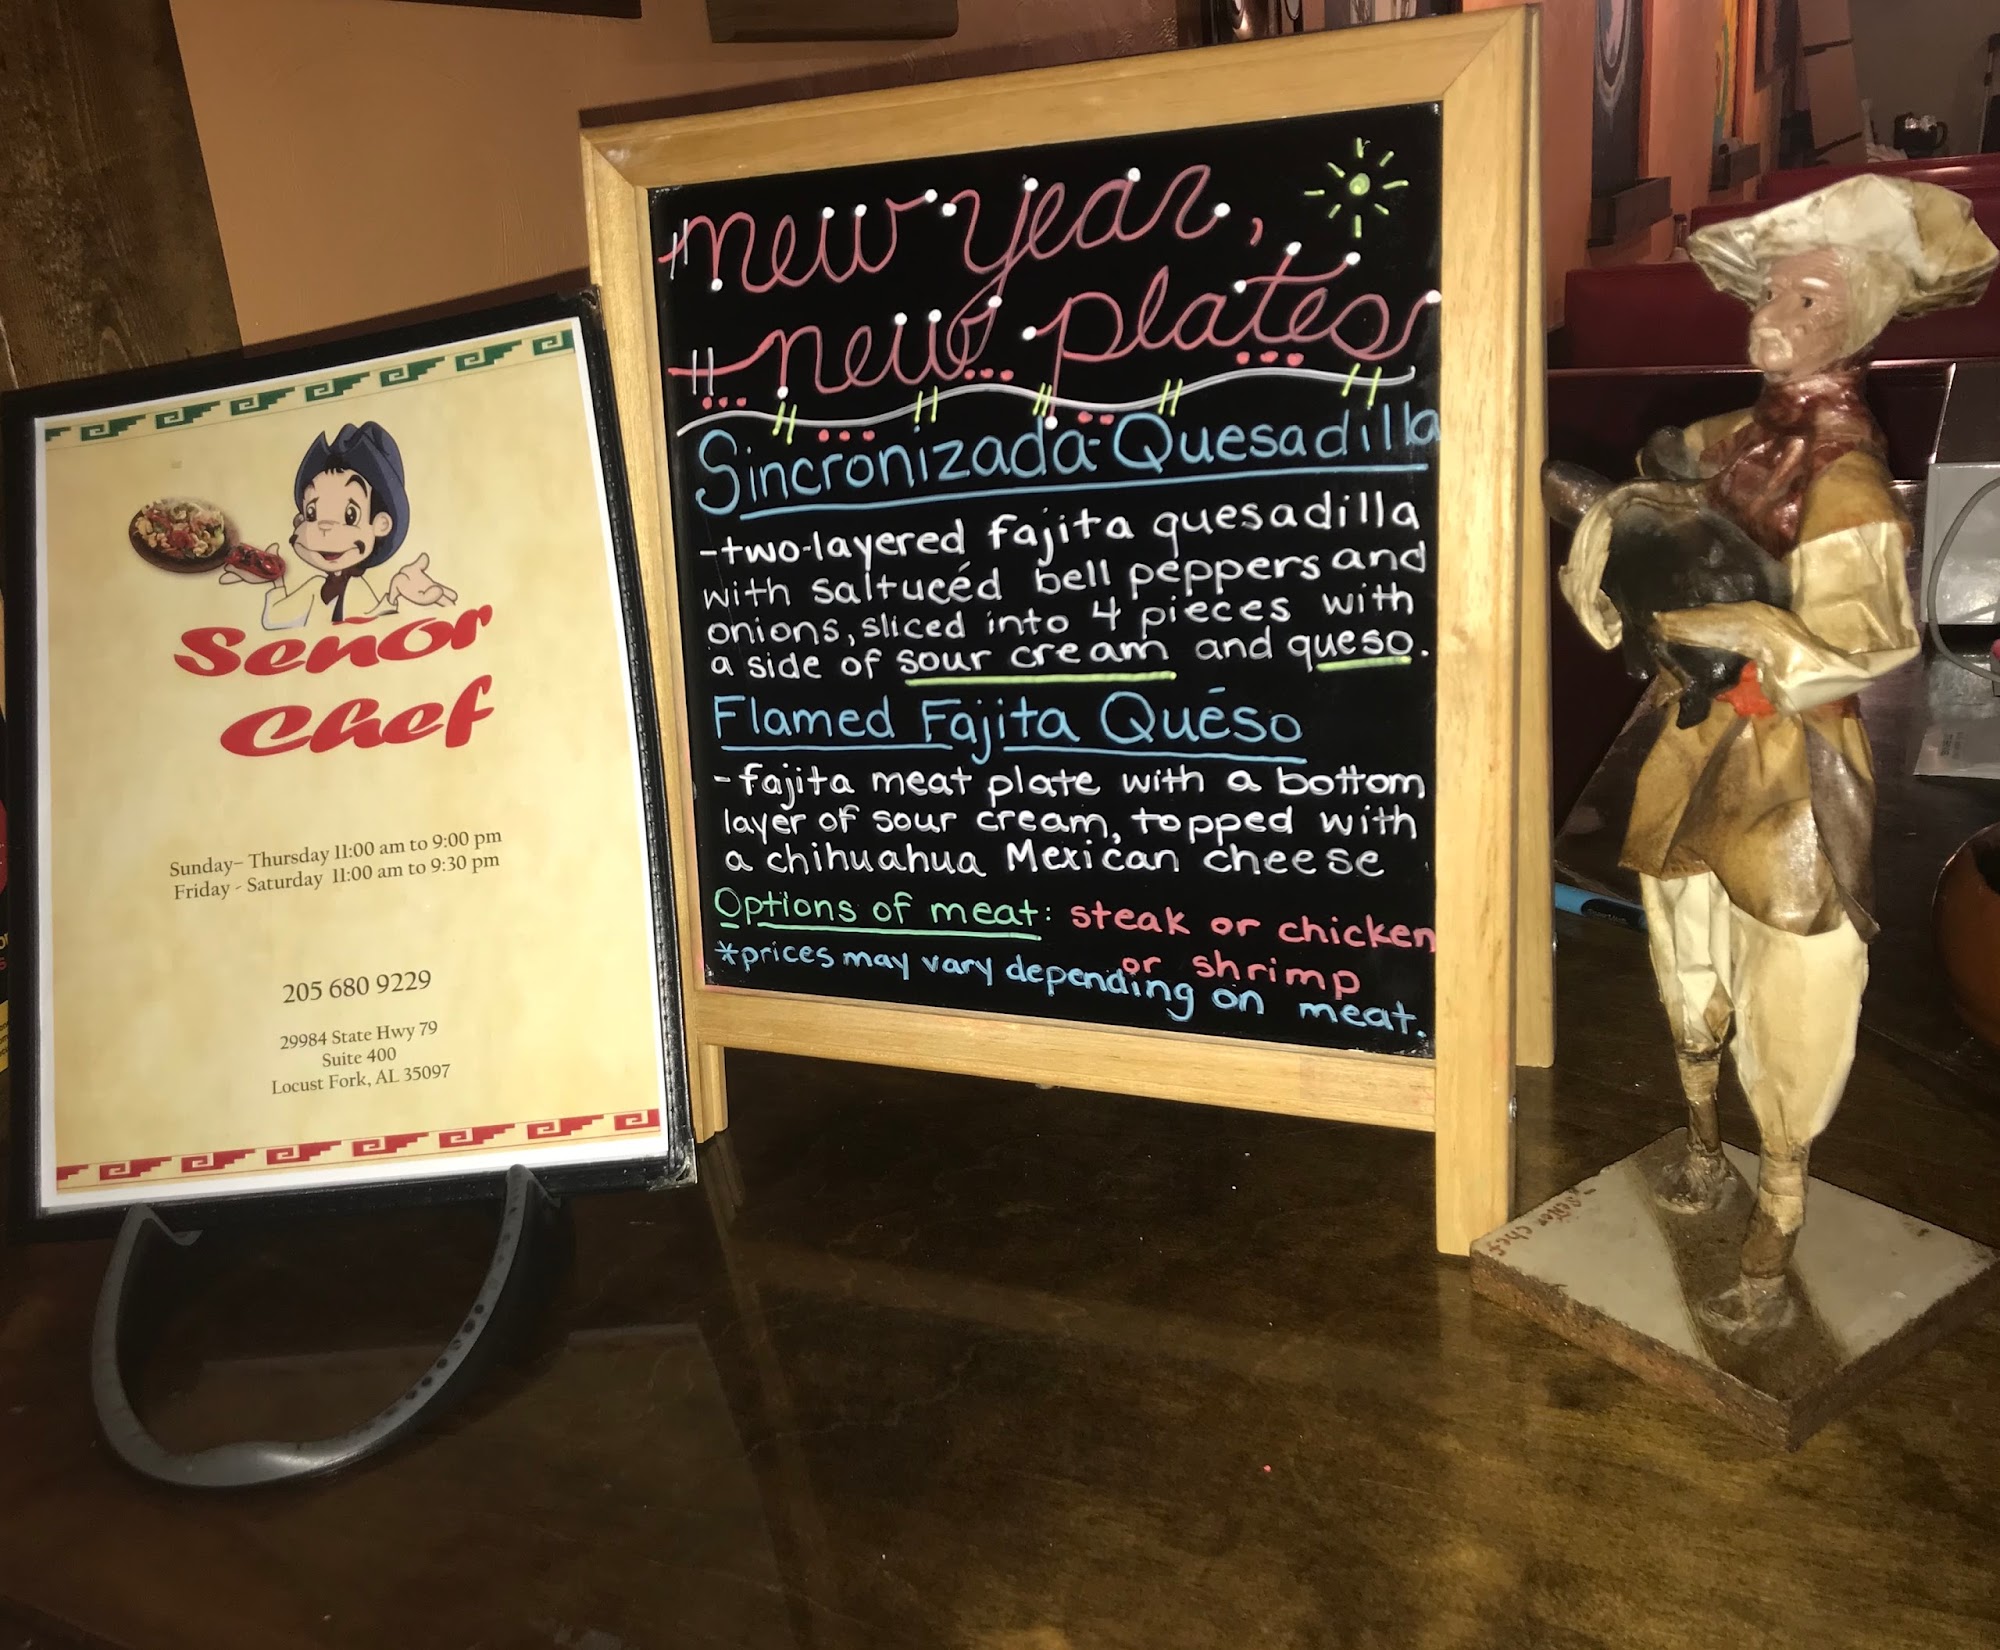 Señor
Chef
Sunday– Thursday 11:00 am to 9:00 pm
Friday - Saturday 11:00 am to 9:30 pm
205 680 9229
29984 State Hwy 79
Suite 400
Locust Fork, AL 35097
new year,
new plates
Sincronizada-Quesadilla
-two-layered fajita quesadilla
with saltucéd bell peppers and
onions, sliced into 4 pieces with
a side of sour cream and queso.
Flamed Fajita Quéso
-fajita meat plate with a bottom
layer of sour cream, topped with
a chihuahua Mexican cheese
Options of meat: steak or chicken
or shrimp
*prices may vary depending on meat.
-señor chef